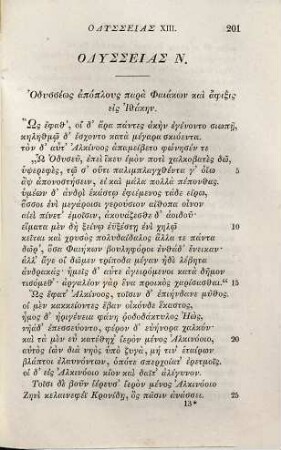 ΟΔΥΣΣΕΙΑΣ XIII. 201
ΟΔΥΣΣΕΙΑΣ Ν.
Ὀδυσσέως ἀπόπλους παρὰ Φαιάκων καὶ ἄφιξις
εἰς Ἰθάκην.
Ὣς ἔφαθ', οἱ δ' ἄρα πάντες ἀκὴν ἐγένοντο σιωπῇ,
κηληθμῷ δ' ἔσχοντο κατὰ μέγαρα σκιόεντα.
τὸν δ' αὖτ' Ἀλκίνοος ἀπαμείβετο φώνησέν τε
"Ὦ Ὀδυσεῦ, ἐπεὶ ἵκευ ἐμὸν ποτὶ χαλκοβατὲς δῶ,
ὑψερεφές, τῷ σ' οὔτι παλιμπλαγχθέντα γ' ὀίω 5
ἂψ ἀπονοστήσειν, εἰ καὶ μάλα πολλὰ πέπονθας.
ὑμέων δ' ἀνδρὶ ἑκάστῳ ἐφιέμενος τάδε εἴρω,
ὅσσοι ἐνὶ μεγάροισι γερούσιον αἴθοπα οἶνον
αἰεὶ πίνετ' ἐμοῖσιν, ἀκουάζεσθε δ' ἀοιδοῦ·
εἵματα μὲν δὴ ξείνῳ ἐϋξέστῃ ἐνὶ χηλῷ 10
κεῖται καὶ χρυσὸς πολυδαίδαλος ἄλλα τε πάντα
δῶρ', ὅσα Φαιήκων βουληφόροι ἐνθάδ' ἔνεικαν·
ἀλλ' ἄγε οἱ δῶμεν τρίποδα μέγαν ἠδὲ λέβητα
ἀνδρακάς· ἡμεῖς δ' αὖτε ἀγειρόμενοι κατὰ δῆμον
τισόμεθ'· ἀργαλέον γὰρ ἕνα προικὸς χαρίσασθαι." 15
Ὣς ἔφατ' Ἀλκίνοος, τοῖσιν δ' ἐπιήνδανε μῦθος.
οἱ μὲν κακκείοντες ἔβαν οἰκόνδε ἕκαστος,
ἦμος δ' ἠριγένεια φάνη ῥοδοδάκτυλος Ἠώς,
νῆάδ' ἐπεσσεύοντο, φέρον δ' εὐήνορα χαλκόν·
καὶ τὰ μὲν εὖ κατέθηχ' ἱερὸν μένος Ἀλκινόοιο, 20
αὐτὸς ἰὼν διὰ νηὸς, ὑπὸ ζυγά, μή τιν' ἑταίρων
βλάπτοι ἐλαυνόντων, ὁπότε σπερχοίατ' ἐρετμοῖς.
οἱ δ' εἰς Ἀλκινόοιο κίον καὶ δαῖτ' ἀλέγυνον.
Τοῖσι δὲ βοῦν ἱέρευσ' ἱερὸν μένος Ἀλκινόοιο
Ζηνὶ κελαινεφέϊ Κρονίδῃ, ὃς πᾶσιν ἀνάσσει. 25
13*